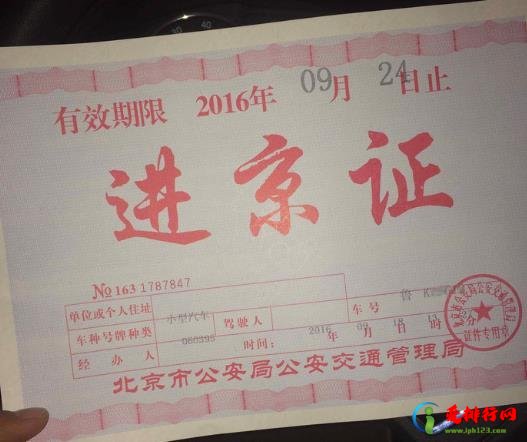 有效期限 2016年 09月 24日止
进京证
No 163 1787847
单位或个人住址
车种号牌种类 小型汽车 驾驶人 车号 鲁 K
经办人 060395 时间: 2016年 09月 18日 分
北京市公安局公安交通管理局
证件专用章
www.iph123.com